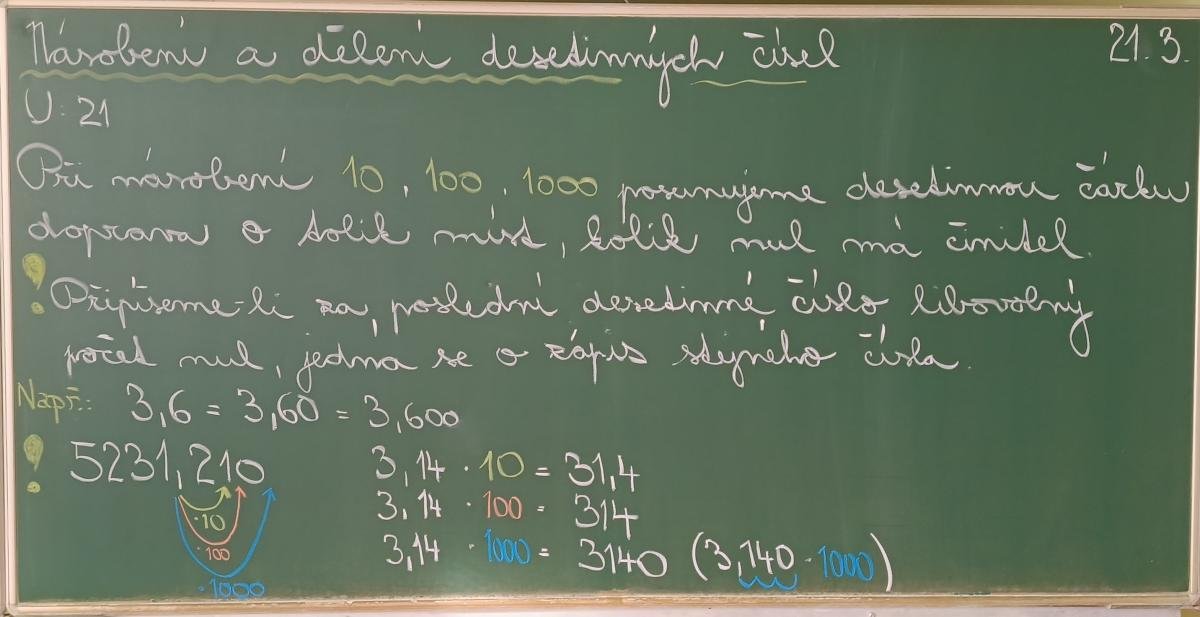 Násobení a dělení desetinných čísel 21. 3.
U: 21
Při násobení 10, 100, 1000 posunujeme desetinnou čárku
doprava o tolik míst, kolik nul má činitel.
! Připíšeme-li za poslední desetinné číslo libovolný
počet nul, jedná se o zápis stejného čísla.
Např.: 3,6 = 3,60 = 3,600
! 5231,210 3,14 · 10 = 31,4
·10 3,14 · 100 = 314
·100 3,14 · 1000 = 3140 (3,140 · 1000)
·1000